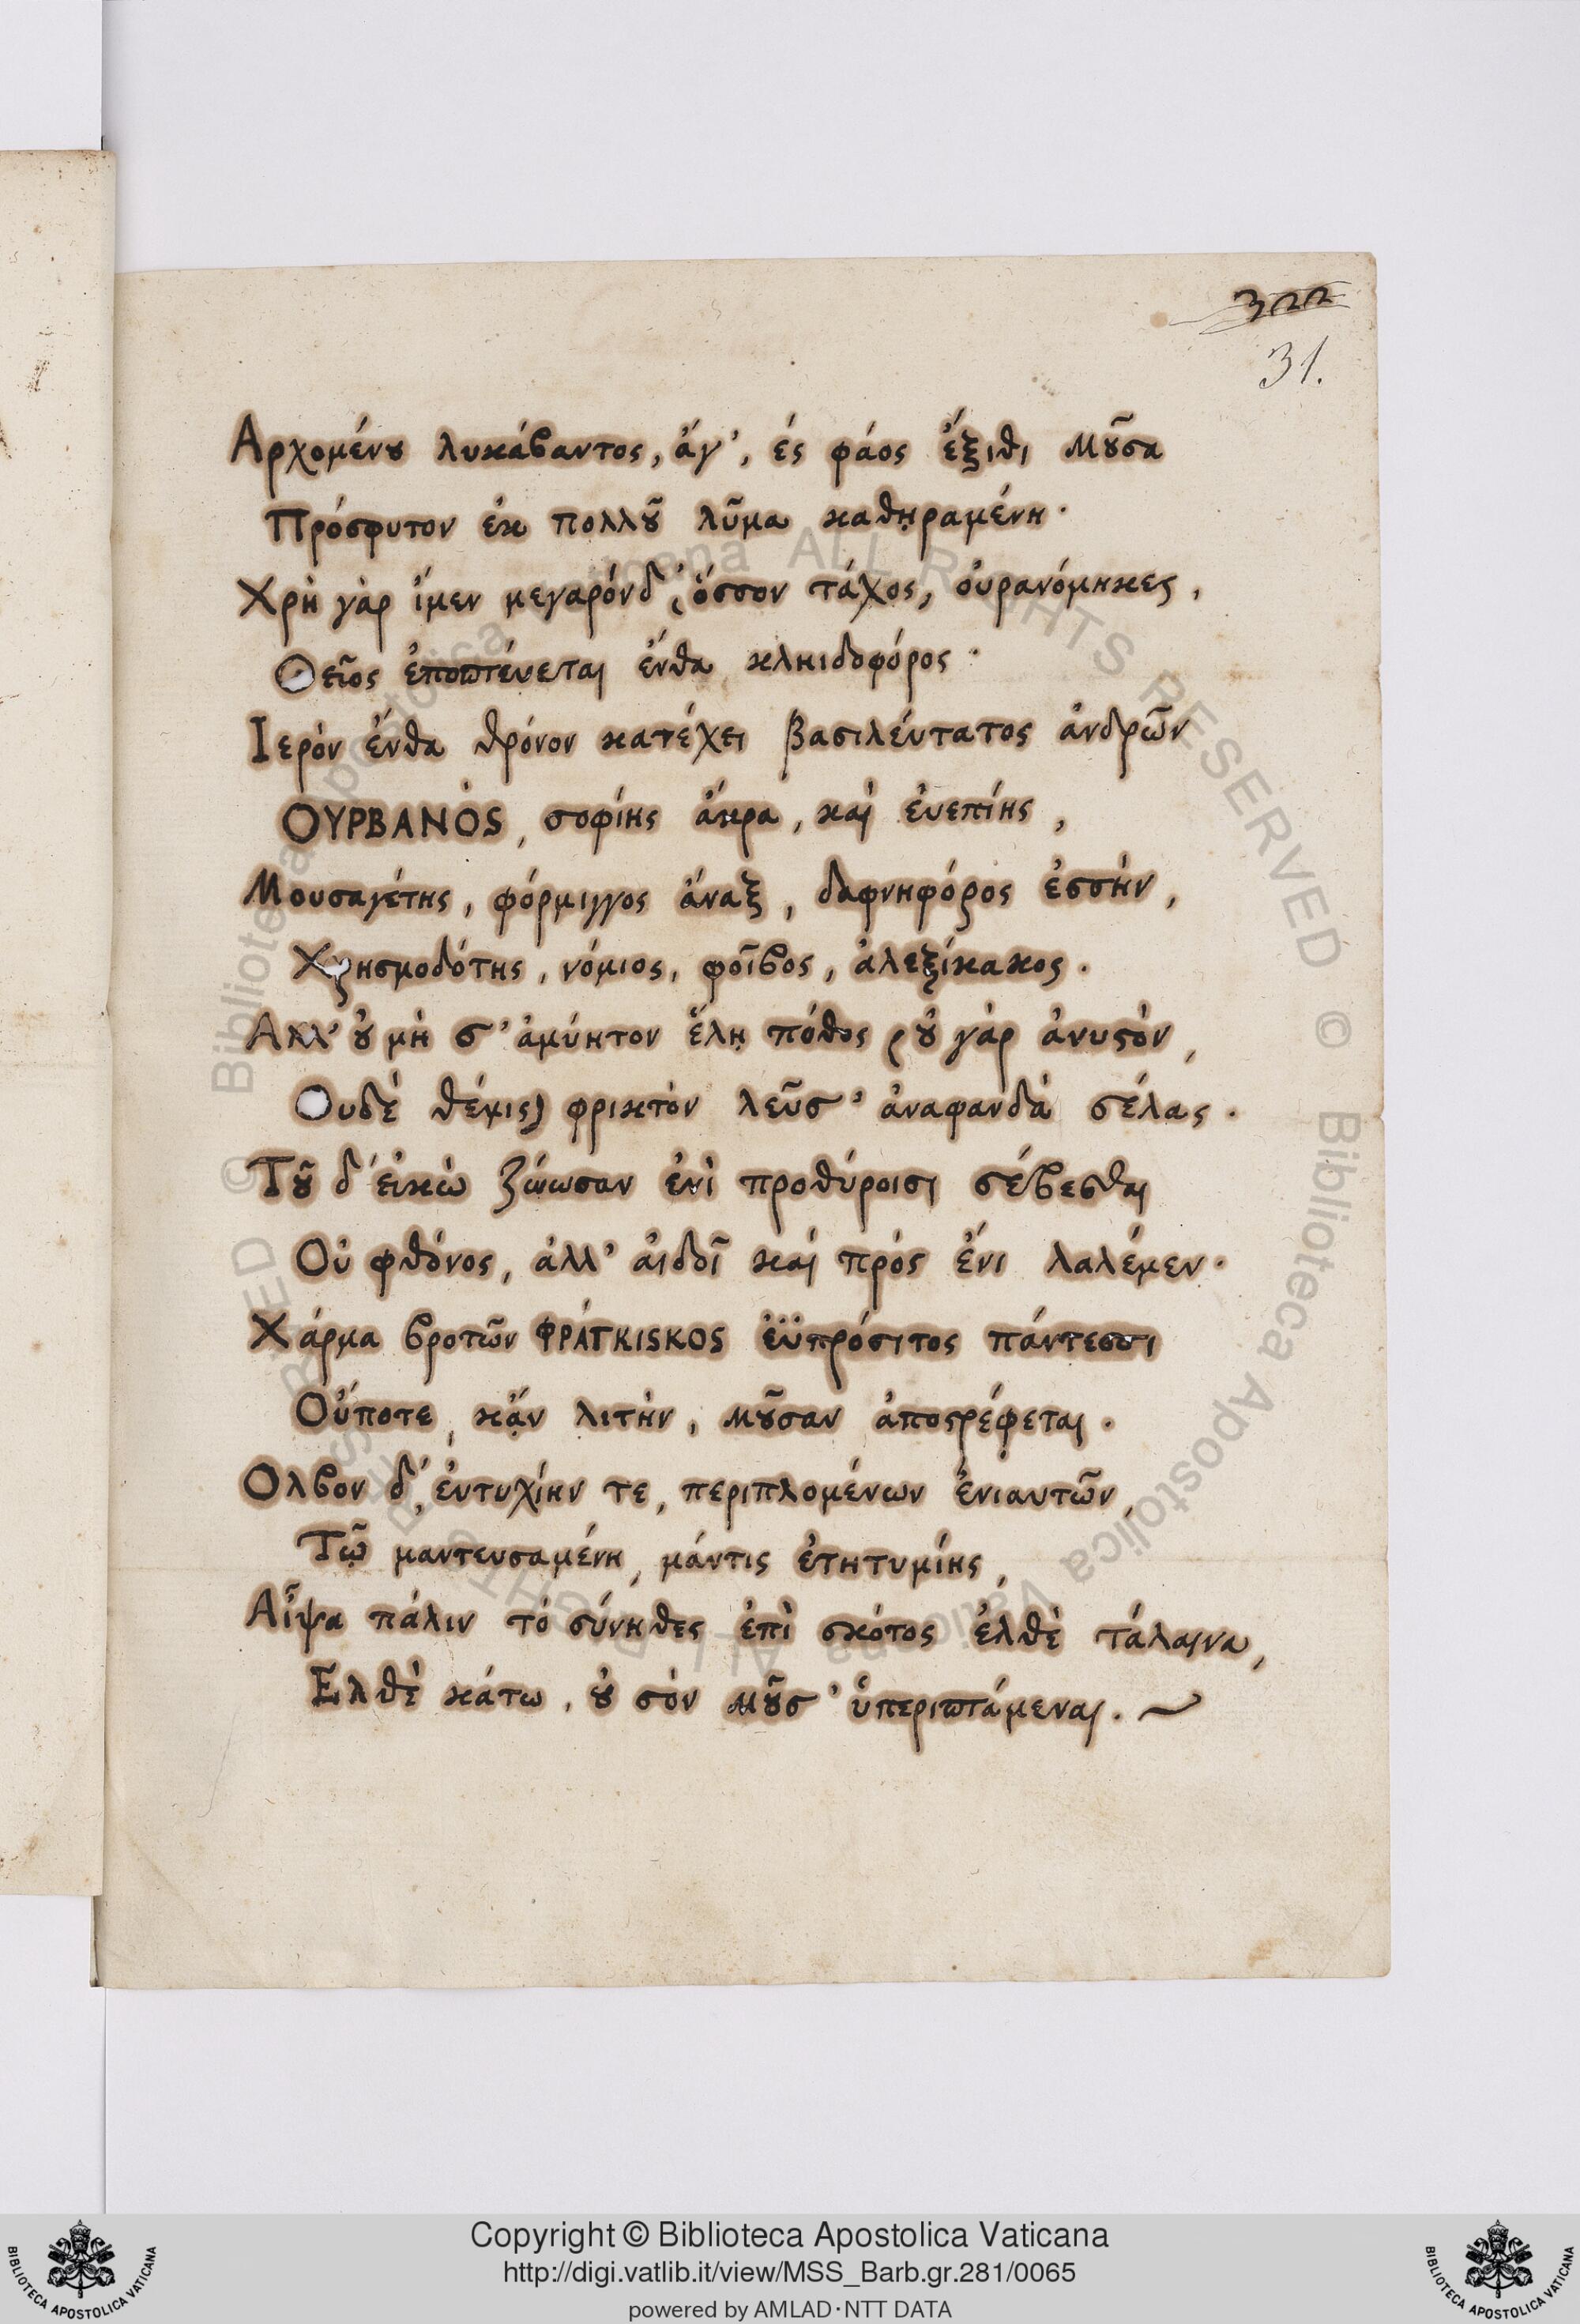 322
31.
Αρχομένȣ λυκάβαντος, ἄγ', ἐς φάος ἔξιθι Μȣ͂σα
Πρόσφυτον ἐκ πολλȣ͂ λῦμα καθῃραμένη·
Χρὴ γὰρ ἴμεν μεγαρόνδ', ὅσσον τάχος, οὐρανόμηκες,
Θεῖος ἐποπτέυεται ἔνθα κληιδοφόρος·
Ιερὸν ἔνθα θρόνον κατέχει βασιλέυτατος ἀνδρῶν
ΟΥΡΒΑΝὸS, σοφίης ἄκρα, καὶ ἐυεπίης,
Μουσαγέτης, φόρμιγγος ἄναξ, δαφνηφόρος ἐσσὴν,
Χρησμοδότης, νόμιος, φοῖβος, ἀλεξίκακος.
Αλλ' ȣ̓ μὴ σ' ἀμύητον ἕλῃ πόθος (ȣ̓ γὰρ ἀνυϛὸν,
Ουδὲ θέμις) φρικτὸν λεῦσ' ἀναφανδὰ σέλας.
Τȣ͂ δ' ἐικὼ ζώωσαν ἐνὶ προθύροισι σέβεσθαι
Οὐ φθόνος, ἀλλ' ἀιδοῖ καὶ πρὸς ἔνι λαλέμεν·
Χάρμα βροτῶν ΦΡΑΓΚΙSΚΟS ἐϋπρόσιτος πάντεσσι
Οὔποτε, κᾂν λιτὴν, Μȣ͂σαν ἀποϛρέφεται.
Ολβον δ', ἐυτυχίην τε, περιπλομένων ἐνιαυτῶν,
Τῷ μαντευσαμένη, μάντις ἐτητυμίης,
Αἶψα πάλιν τὸ σύνηθες ἐπὶ σκότος ἐλθὲ τάλαινα,
Ελθὲ κάτω, ȣ̓ σὸν Μȣ͂σ' ὑπεριπτάμεναι.
© Biblioteca Apostolica Vaticana ALL RIGHTS RESERVED © Biblioteca Apostolica Vaticana ALL RIGHTS RESERVED
Copyright © Biblioteca Apostolica Vaticana
http://digi.vatlib.it/view/MSS_Barb.gr.281/0065
powered by AMLAD·NTT DATA
BIBLIOTECA APOSTOLICA VATICANA
BIBLIOTECA APOSTOLICA VATICANA